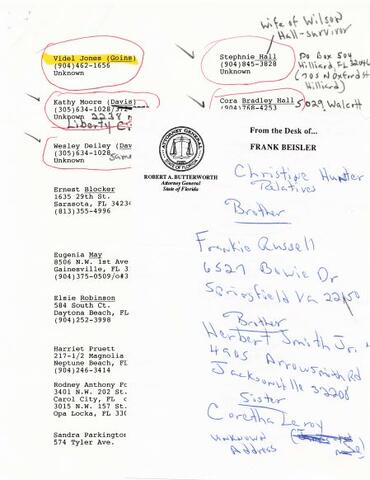 Wife of Wilson
Hall-survivor
Videl Jones (Goins)
(904)462-1656
Unknown
Stephnie Hall
(904)845-3828
Unknown
Po Box 504
Hilliard, FL
Hilliard)
Kathy Moore (Davis)
(305)634-1028
Unknown 2238
Liberty C
Cora Bradley Hall
(904)768-4253
5029 Walcott
Wesley Deiley (Dav
(305)634-1028
Unknown Same
ATTORNEY GENERAL
ROBERT A. BUTTERWORTH
Attorney General
State of Florida
From the Desk of...
FRANK BEISLER
Christine Hunter
Relatives
Brother
Frankie Russell
6527 Bowie Dr
Springfield Va 22150
Brother
Herbert Smith Jr.
4965 Arrowsmith Rd
Jacksonville 32208
Sister
Coretha Leroy
unknown
Address
Ernest Blocker
1635 29th St.
Sarasota, FL 3423
(813)355-4996
Eugenia May
8506 N.W. 1st Ave
Gainesville, FL 3
(904)375-0509/o#3
Elsie Robinson
584 South Ct.
Daytona Beach, FL
(904)252-3998
Harriet Pruett
217-1/2 Magnolia
Neptune Beach, FL
(904)246-3414
Rodney Anthony Fo
3401 N.W. 202 St.
Carol City, FL
3015 N.W. 157 St.
Opa Locka, FL 330
Sandra Parkington
574 Tyler Ave.